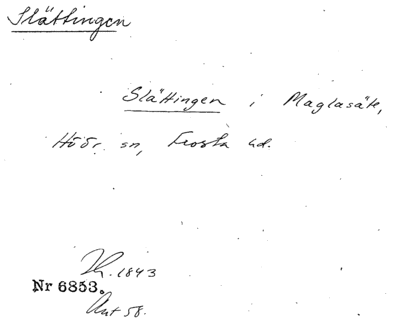 Slättingen
Slättingen i Maglasäte,
Höör sn, Frosta hd.
Th. 1843
Nr 6853.
Ant 58.